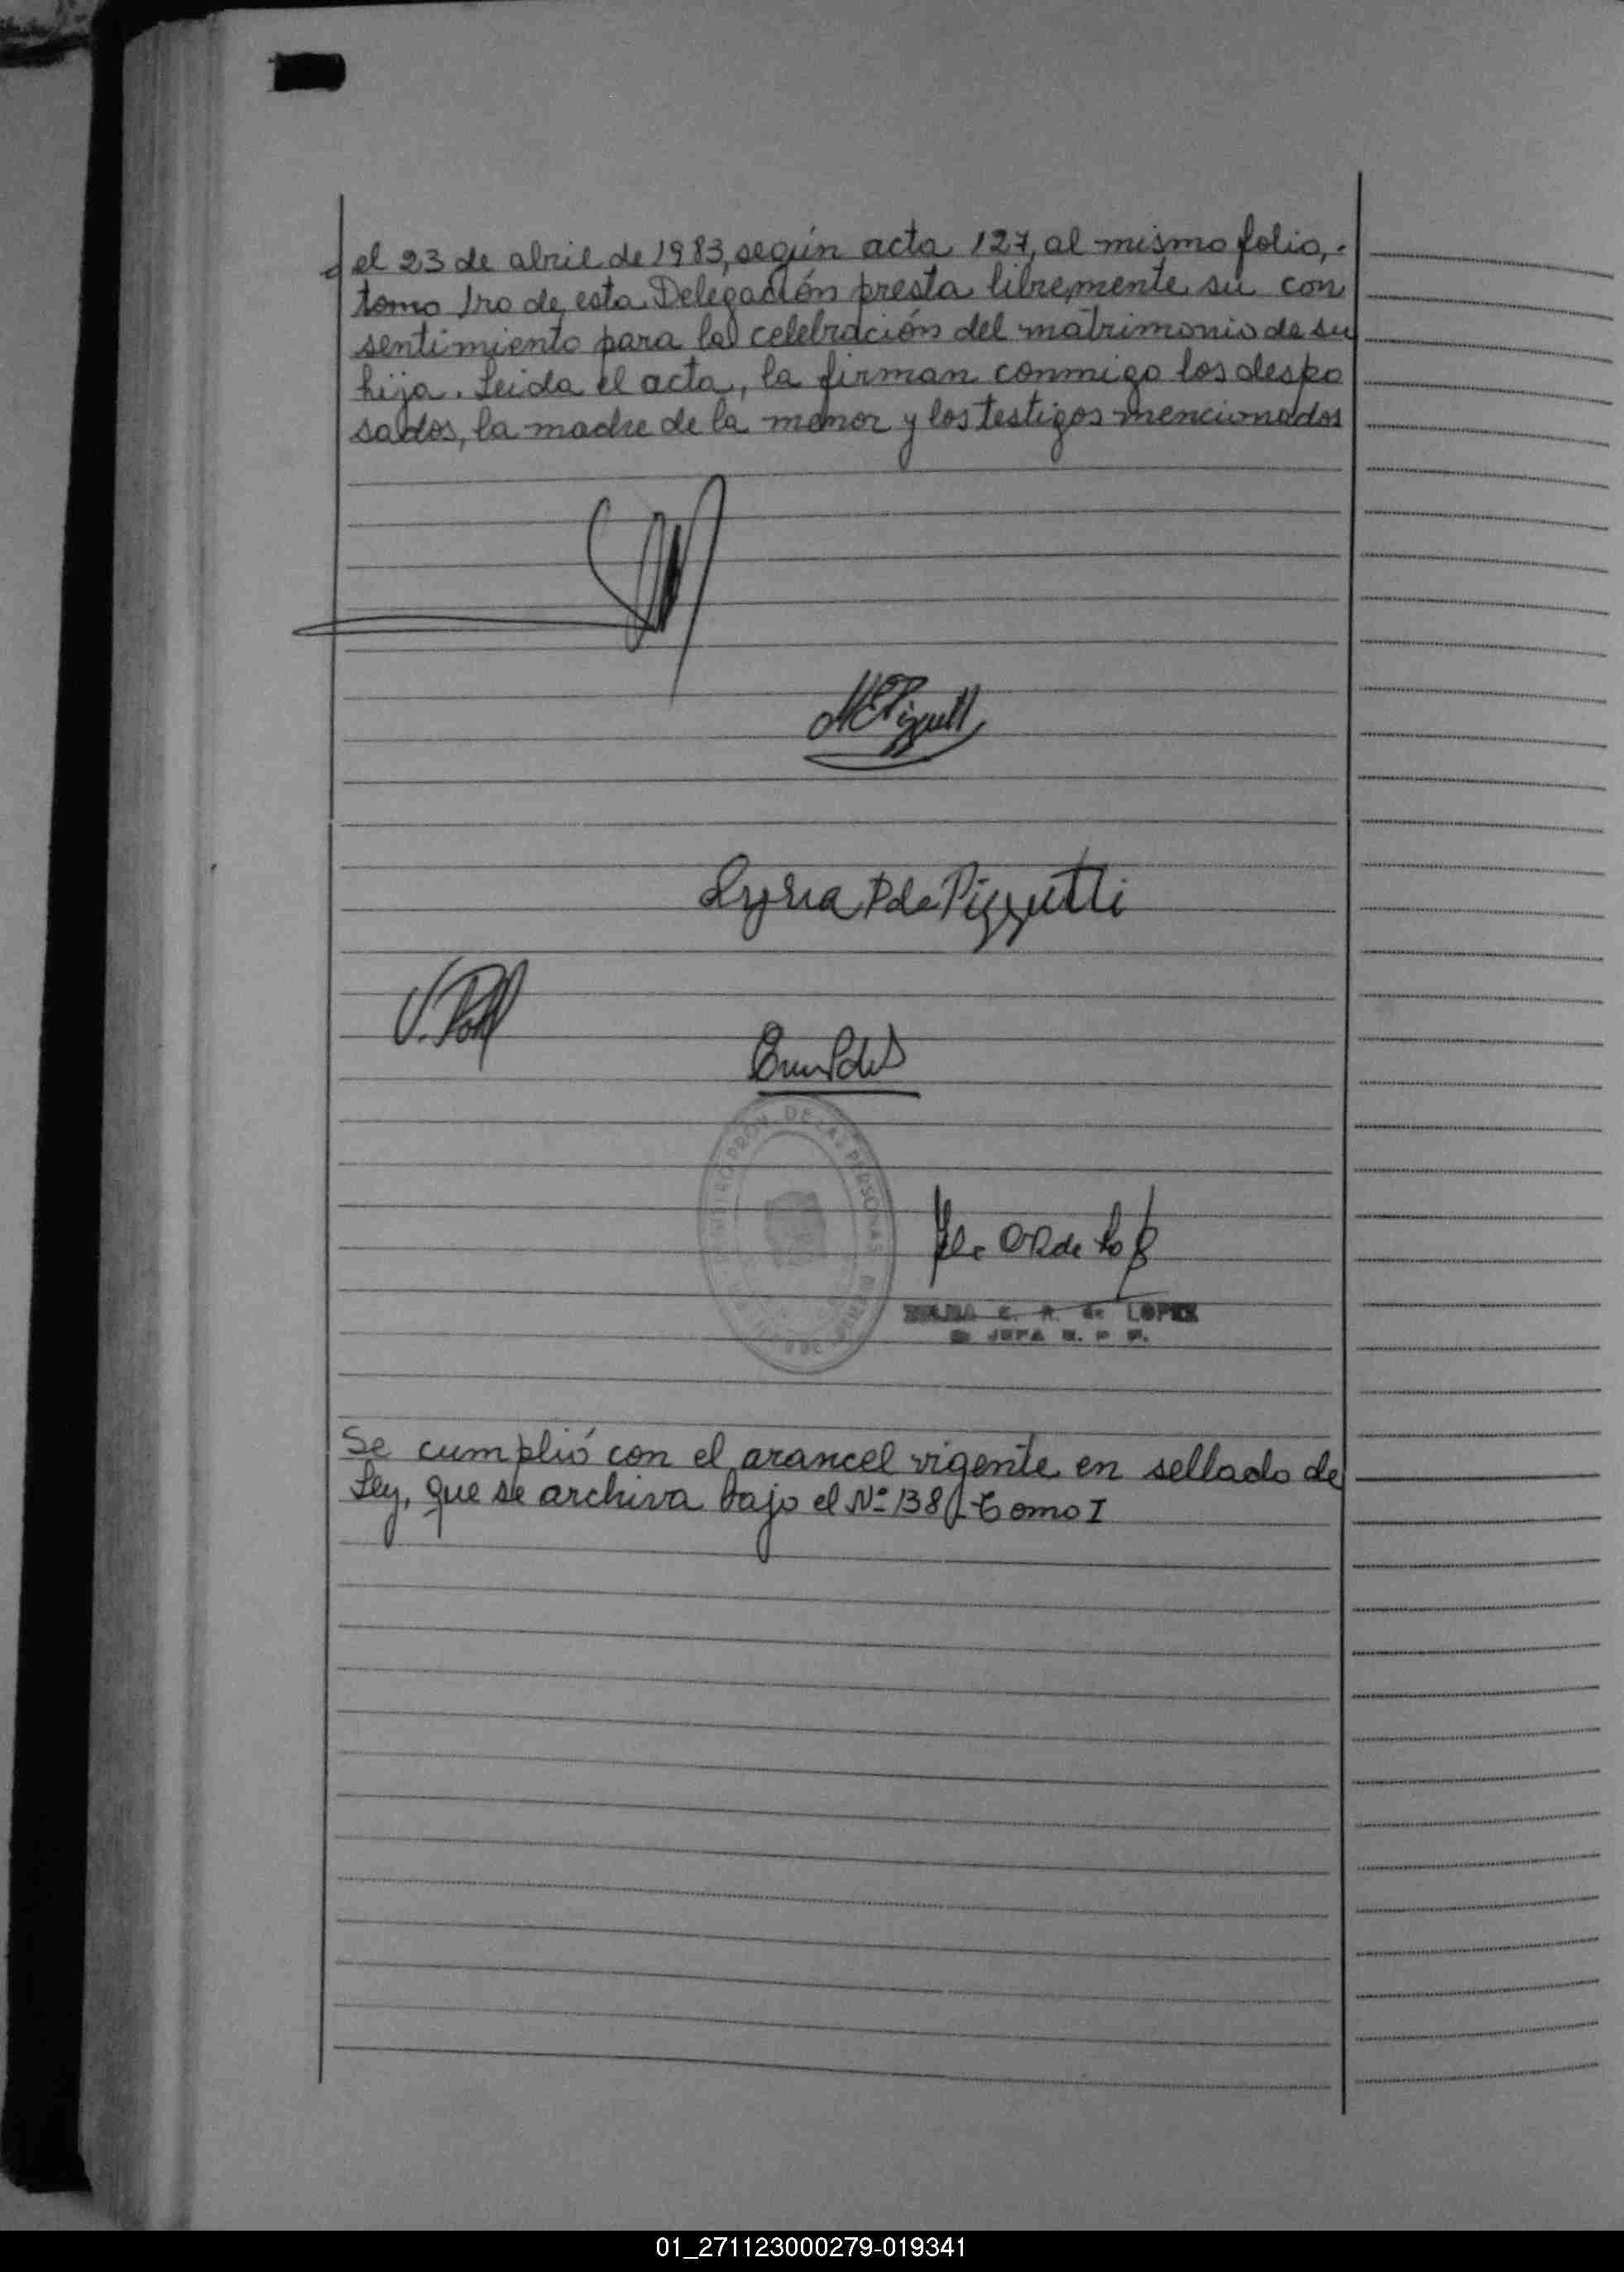 el 23 de abril de 1983, según acta 127, al mismo folio,.
tomo 1ro de esta Delegación presta libremente su con
sentimiento para la celebración del matrimonio de su
hija. Leida el acta, la firman conmigo los despo
sados, la madre de la menor y los testigos mencionados
Lyria P de Pizzutti
DE LAS PERSONAS
C. R. de LOPEZ
JEFA
Se cumplió con el arancel vigente en sellado de
Ley, que se archiva bajo el Nº 138 Tomo I
01_271123000279-019341